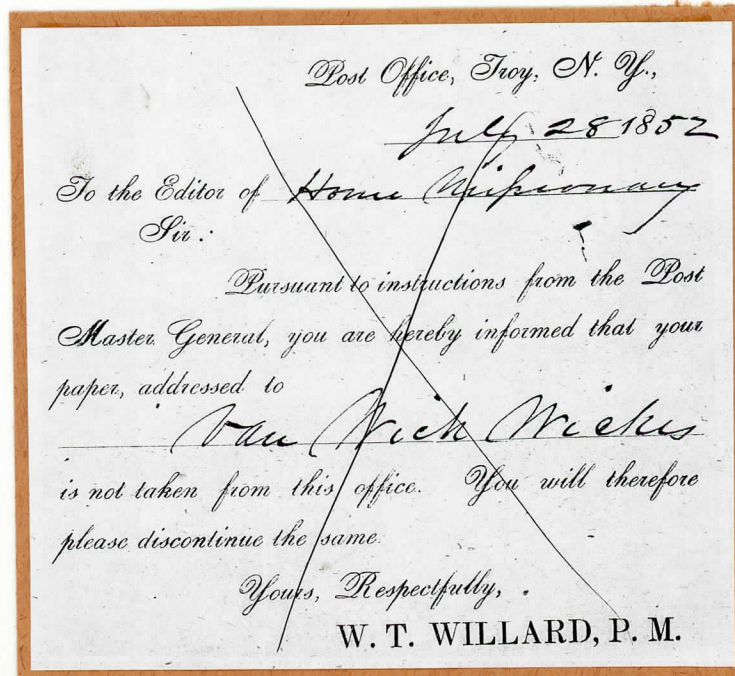 Post Office, Troy, N. Y.,
July 28 1852
To the Editor of Home Missionary
Sir:
Pursuant to instructions from the Post
Master General, you are hereby informed that your
paper, addressed to
Van Wick Wickes
is not taken from this office. You will therefore
please discontinue the same.
Yours, Respectfully,
W. T. WILLARD, P. M.